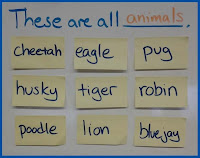 These are all animals.
cheetah eagle pug
husky tiger robin
poodle lion bluejay